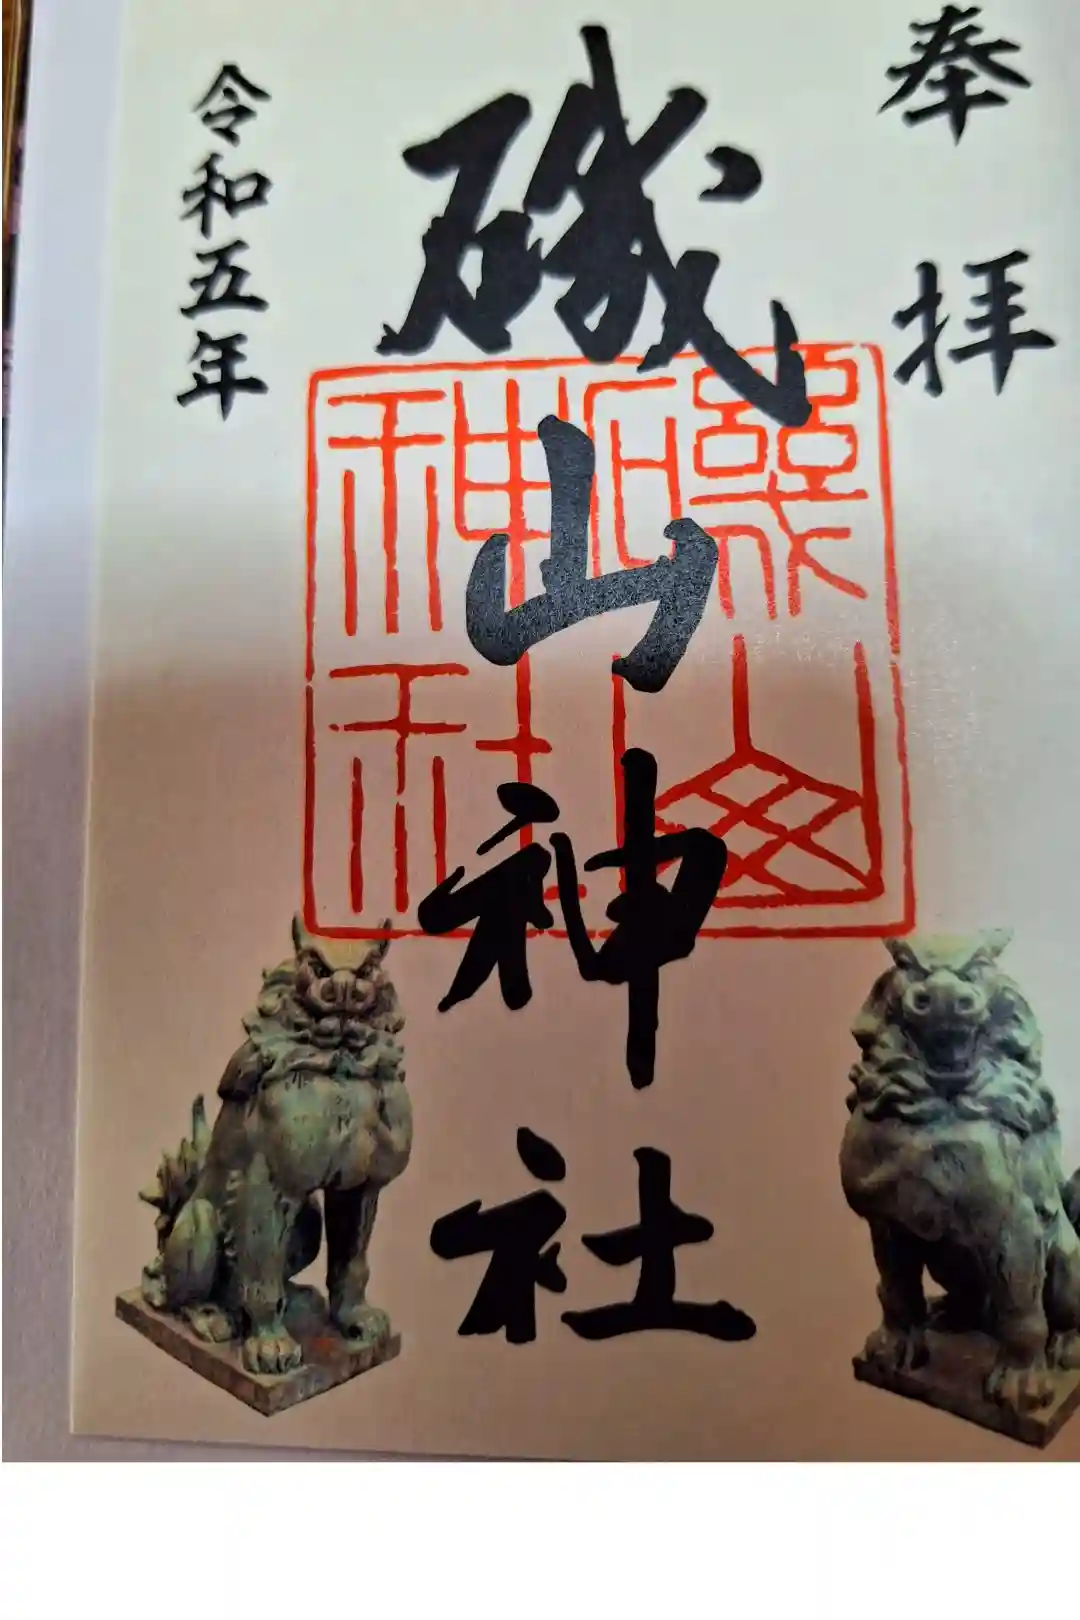 奉拝
磯山神社
磯山神社
令和五年